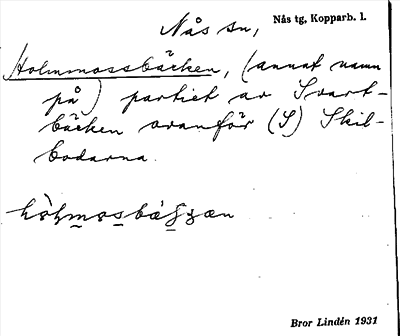 Nås sn,
Nås tg, Kopparb. l.
Holmmossbäcken, (annat namn
på) partiet av Svart-
bäcken ovanför (S) Skil-
bodarna.
Bror Lindén 1931